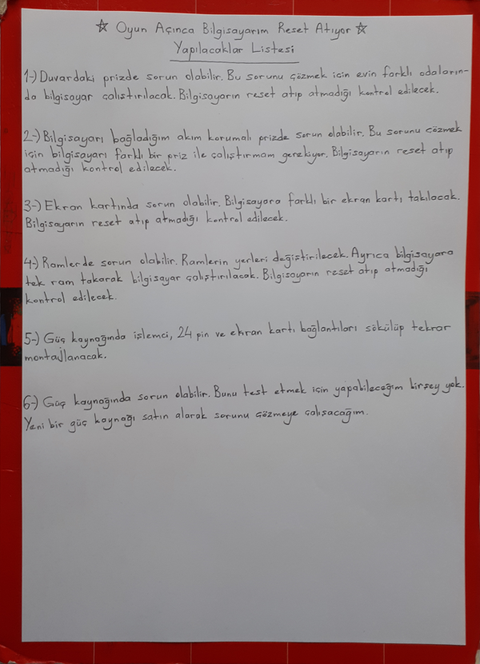 ☆ Oyun Açınca Bilgisayarım Reset Atıyor ☆
Yapılacaklar Listesi
1-) Duvardaki prizde sorun olabilir. Bu sorunu çözmek için evin farklı odaların-
da bilgisayar çalıştırılacak. Bilgisayarın reset atıp atmadığı kontrol edilecek.
2-) Bilgisayarı bağladığım akım korumalı prizde sorun olabilir. Bu sorunu çözmek
için bilgisayarı farklı bir priz ile çalıştırmam gerekiyor. Bilgisayarın reset atıp
atmadığı kontrol edilecek.
3-) Ekran kartında sorun olabilir. Bilgisayara farklı bir ekran kartı takılacak.
Bilgisayarın reset atıp atmadığı kontrol edilecek.
4-) Ramlerde sorun olabilir. Ramlerin yerleri değiştirilecek. Ayrıca bilgisayara
tek ram takarak bilgisayar çalıştırılacak. Bilgisayarın reset atıp atmadığı
kontrol edilecek.
5-) Güç kaynağında işlemci, 24 pin ve ekran kartı bağlantıları sökülüp tekrar
montajlanacak.
6-) Güç kaynağında sorun olabilir. Bunu test etmek için yapabileceğim birşey yok.
Yeni bir güç kaynağı satın alarak sorunu çözmeye çalışacağım.